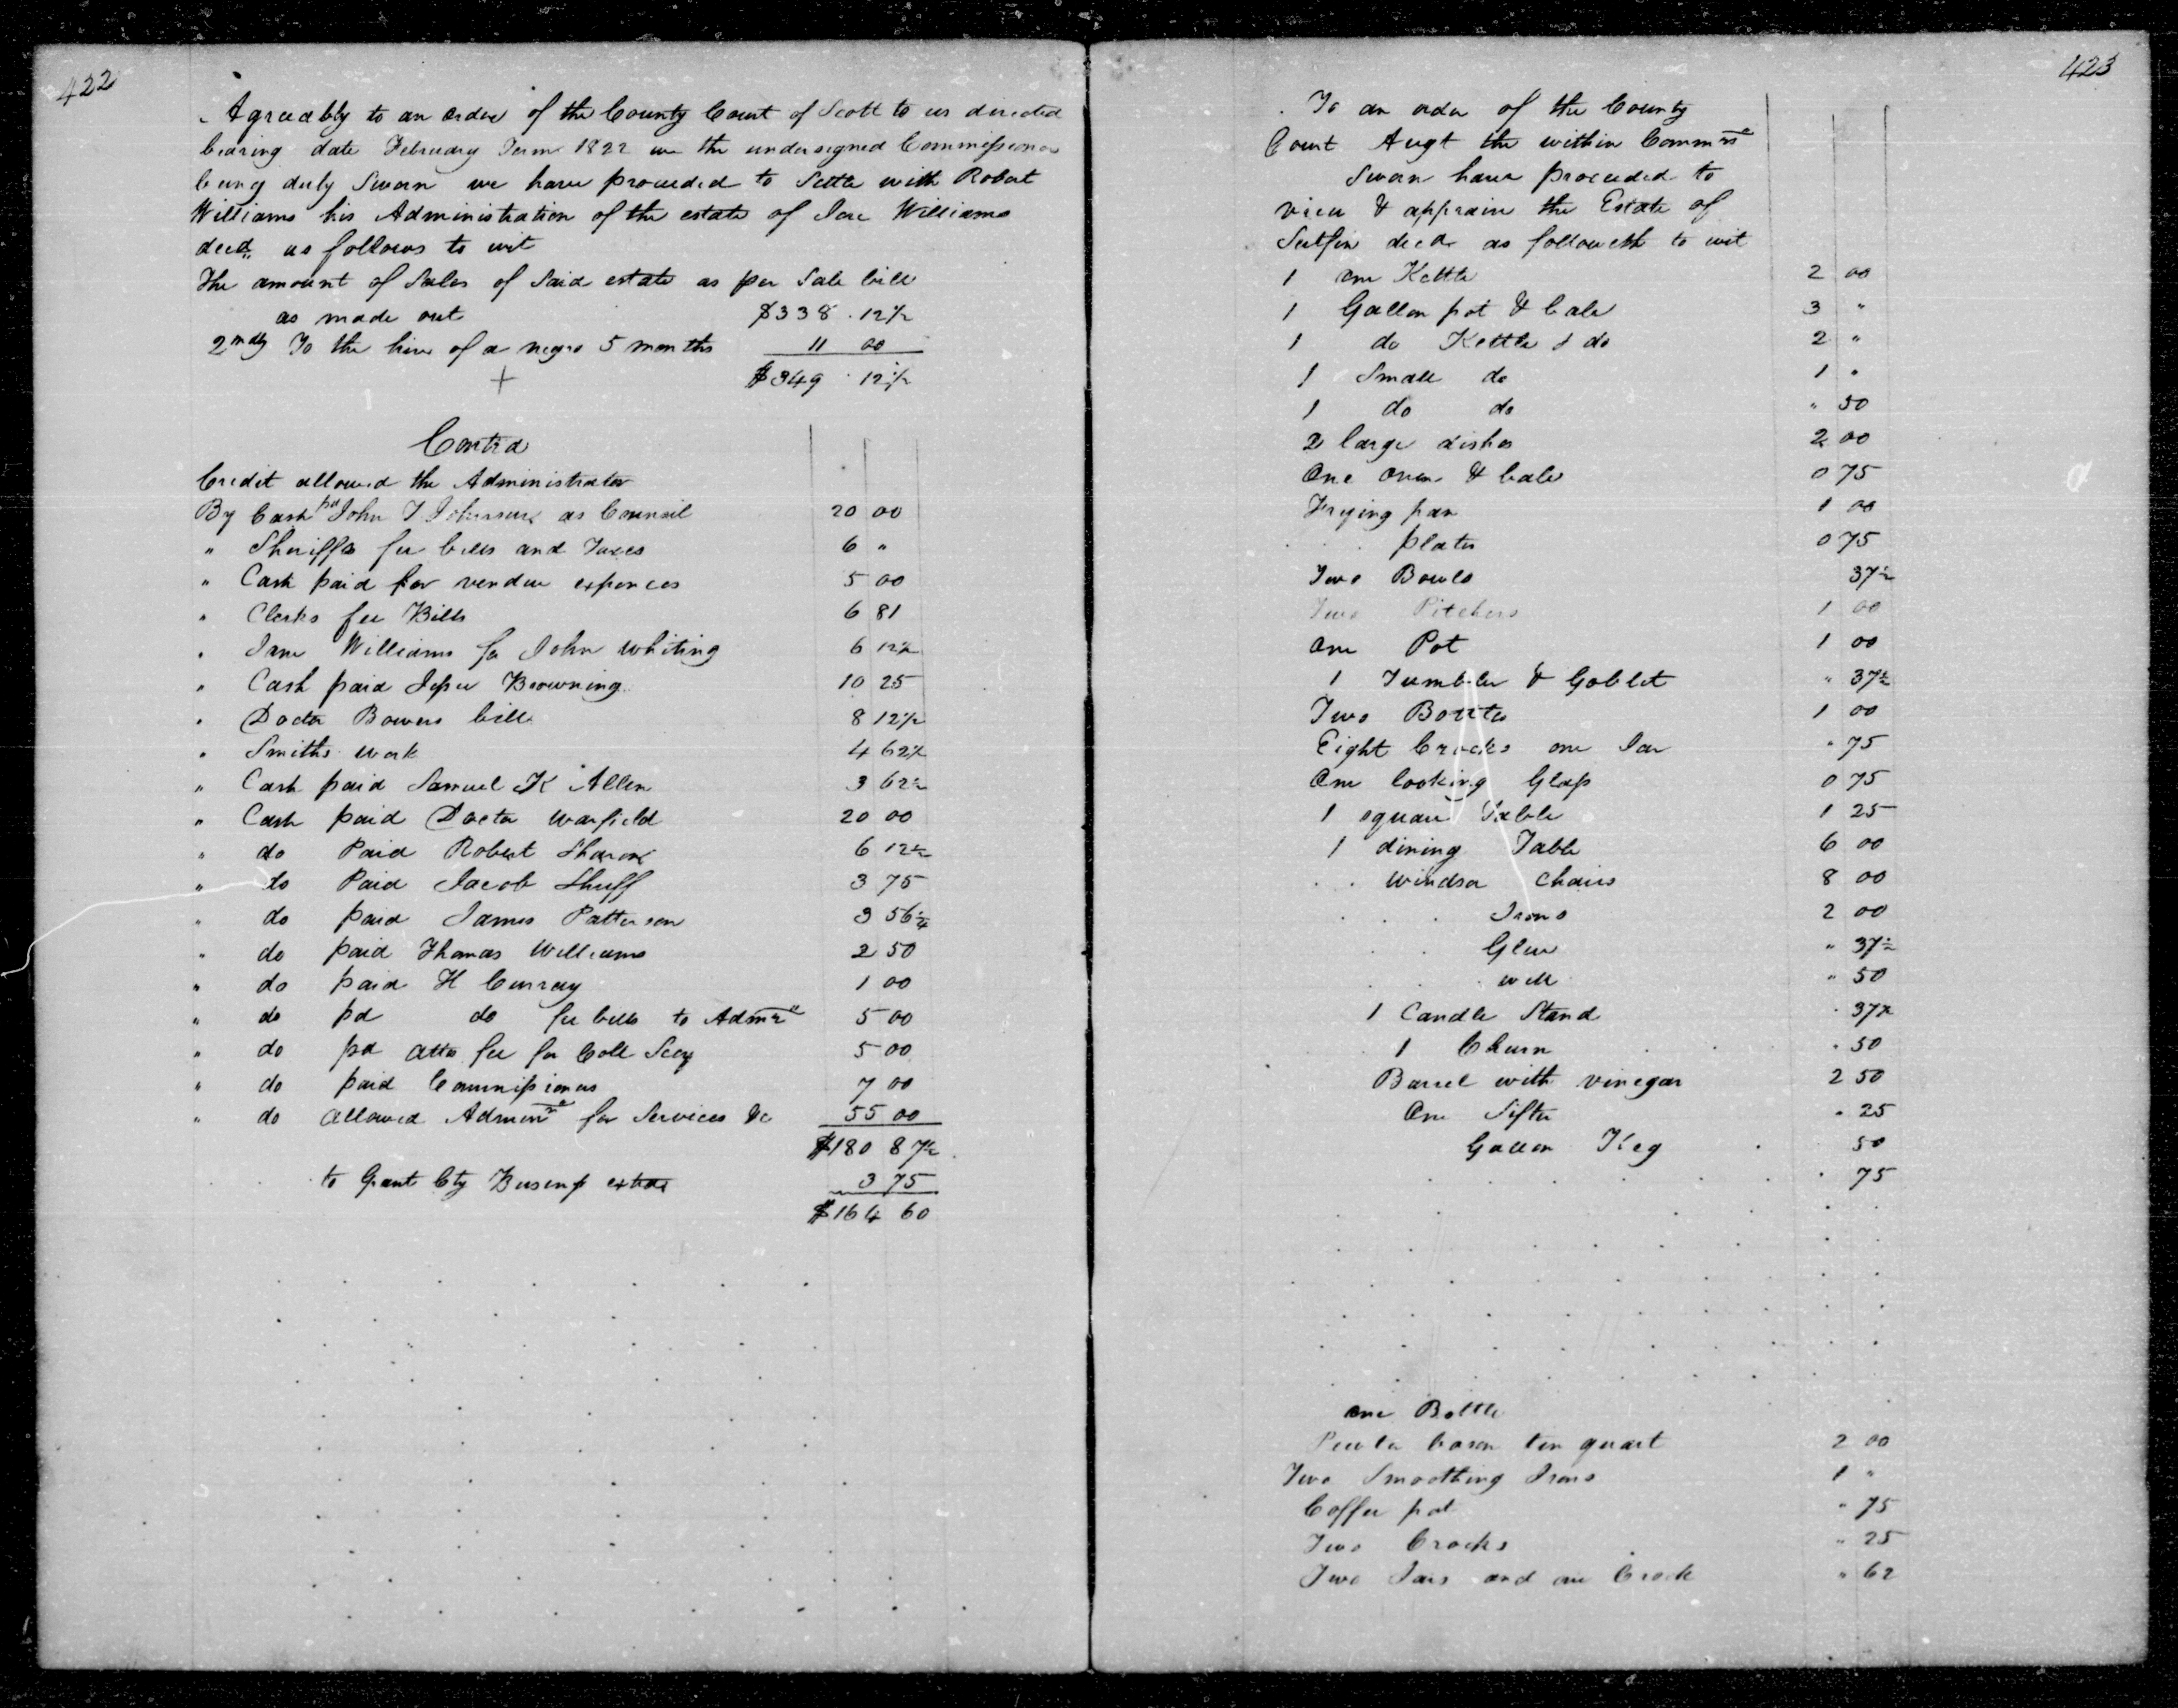 422
Agreeably to an order of the County Court of Scott to us directed
bearing date February Term 1822 we the undersigned Commissioners
being duly Sworn we have proceeded to Settle with Robert
Williams his Administration of the estate of Williams
decd. as follows to wit
The amount of Sales of Said estate as per Sale bill
as made out $338 . 12½
2ndly To the hire of a negro 5 months 11 00
$349 . 12½
Contra
Credit allowed the Administrator
By Cash pd John T Johnson as Council 20 00
" Sheriffs fee bills and Taxes 6 "
" Cash paid for vendue expences 5 00
" Clerks fee Bills 6 81
" Williams for John Whiting 6 12½
" Cash paid Jesse Browning 10 25
" Doctor Bowers bill 8 12½
" Smiths work 4 62½
" Cash paid Samuel K Allen 3 62½
" Cash paid Doctor Warfield 20 00
" do Paid Robert Sharon 6 12½
" do Paid Jacob Shuff 3 75
" do paid James Patterson 3 56¼
" do paid Thomas Williams 2 50
" do paid H Curray 1 00
" do pd do fee bills to Admr 5 00
" do pd atto fee for Coll Scey 5 00
" do paid Commissioners 7 00
" do allowed Admin for Services &c 55 00
$180 87½
to Grant Cty Business extra 3 75
$164 60
423
To an order of the County
Court Augt the within Commrs
Sworn have proceeded to
view & appraise the Estate of
Sutfin decd as followeth to wit
1 one Kettle 2 00
1 Gallon pot & bale 3 "
1 do Kettle & do 2 "
1 Small do 1 "
1 do do " 50
2 large dishes 2 00
One oven & bale 0 75
Frying pan 1 00
plates 0 75
Two Bowls 37½
Two Pitchers 1 00
one Pot 1 00
1 Tumbler & Goblet " 37½
Two Bottles 1 00
Eight Crocks one Jar " 75
One looking Glass 0 75
1 square Table 1 25
1 dining Table 6 00
Windsor Chairs 8 00
Irons 2 00
Glue " 37½
" 50
1 Candle Stand " 37½
1 Churn " 50
Barrel with vinegar 2 50
One Sifter " 25
Gallon Keg 50
" 75
one Bottle
Pewter bason ten quart 2 00
Two Smoothing Irons 1 "
Coffee pot " 75
Two Crocks " 25
Two Jars and one Crock " 62